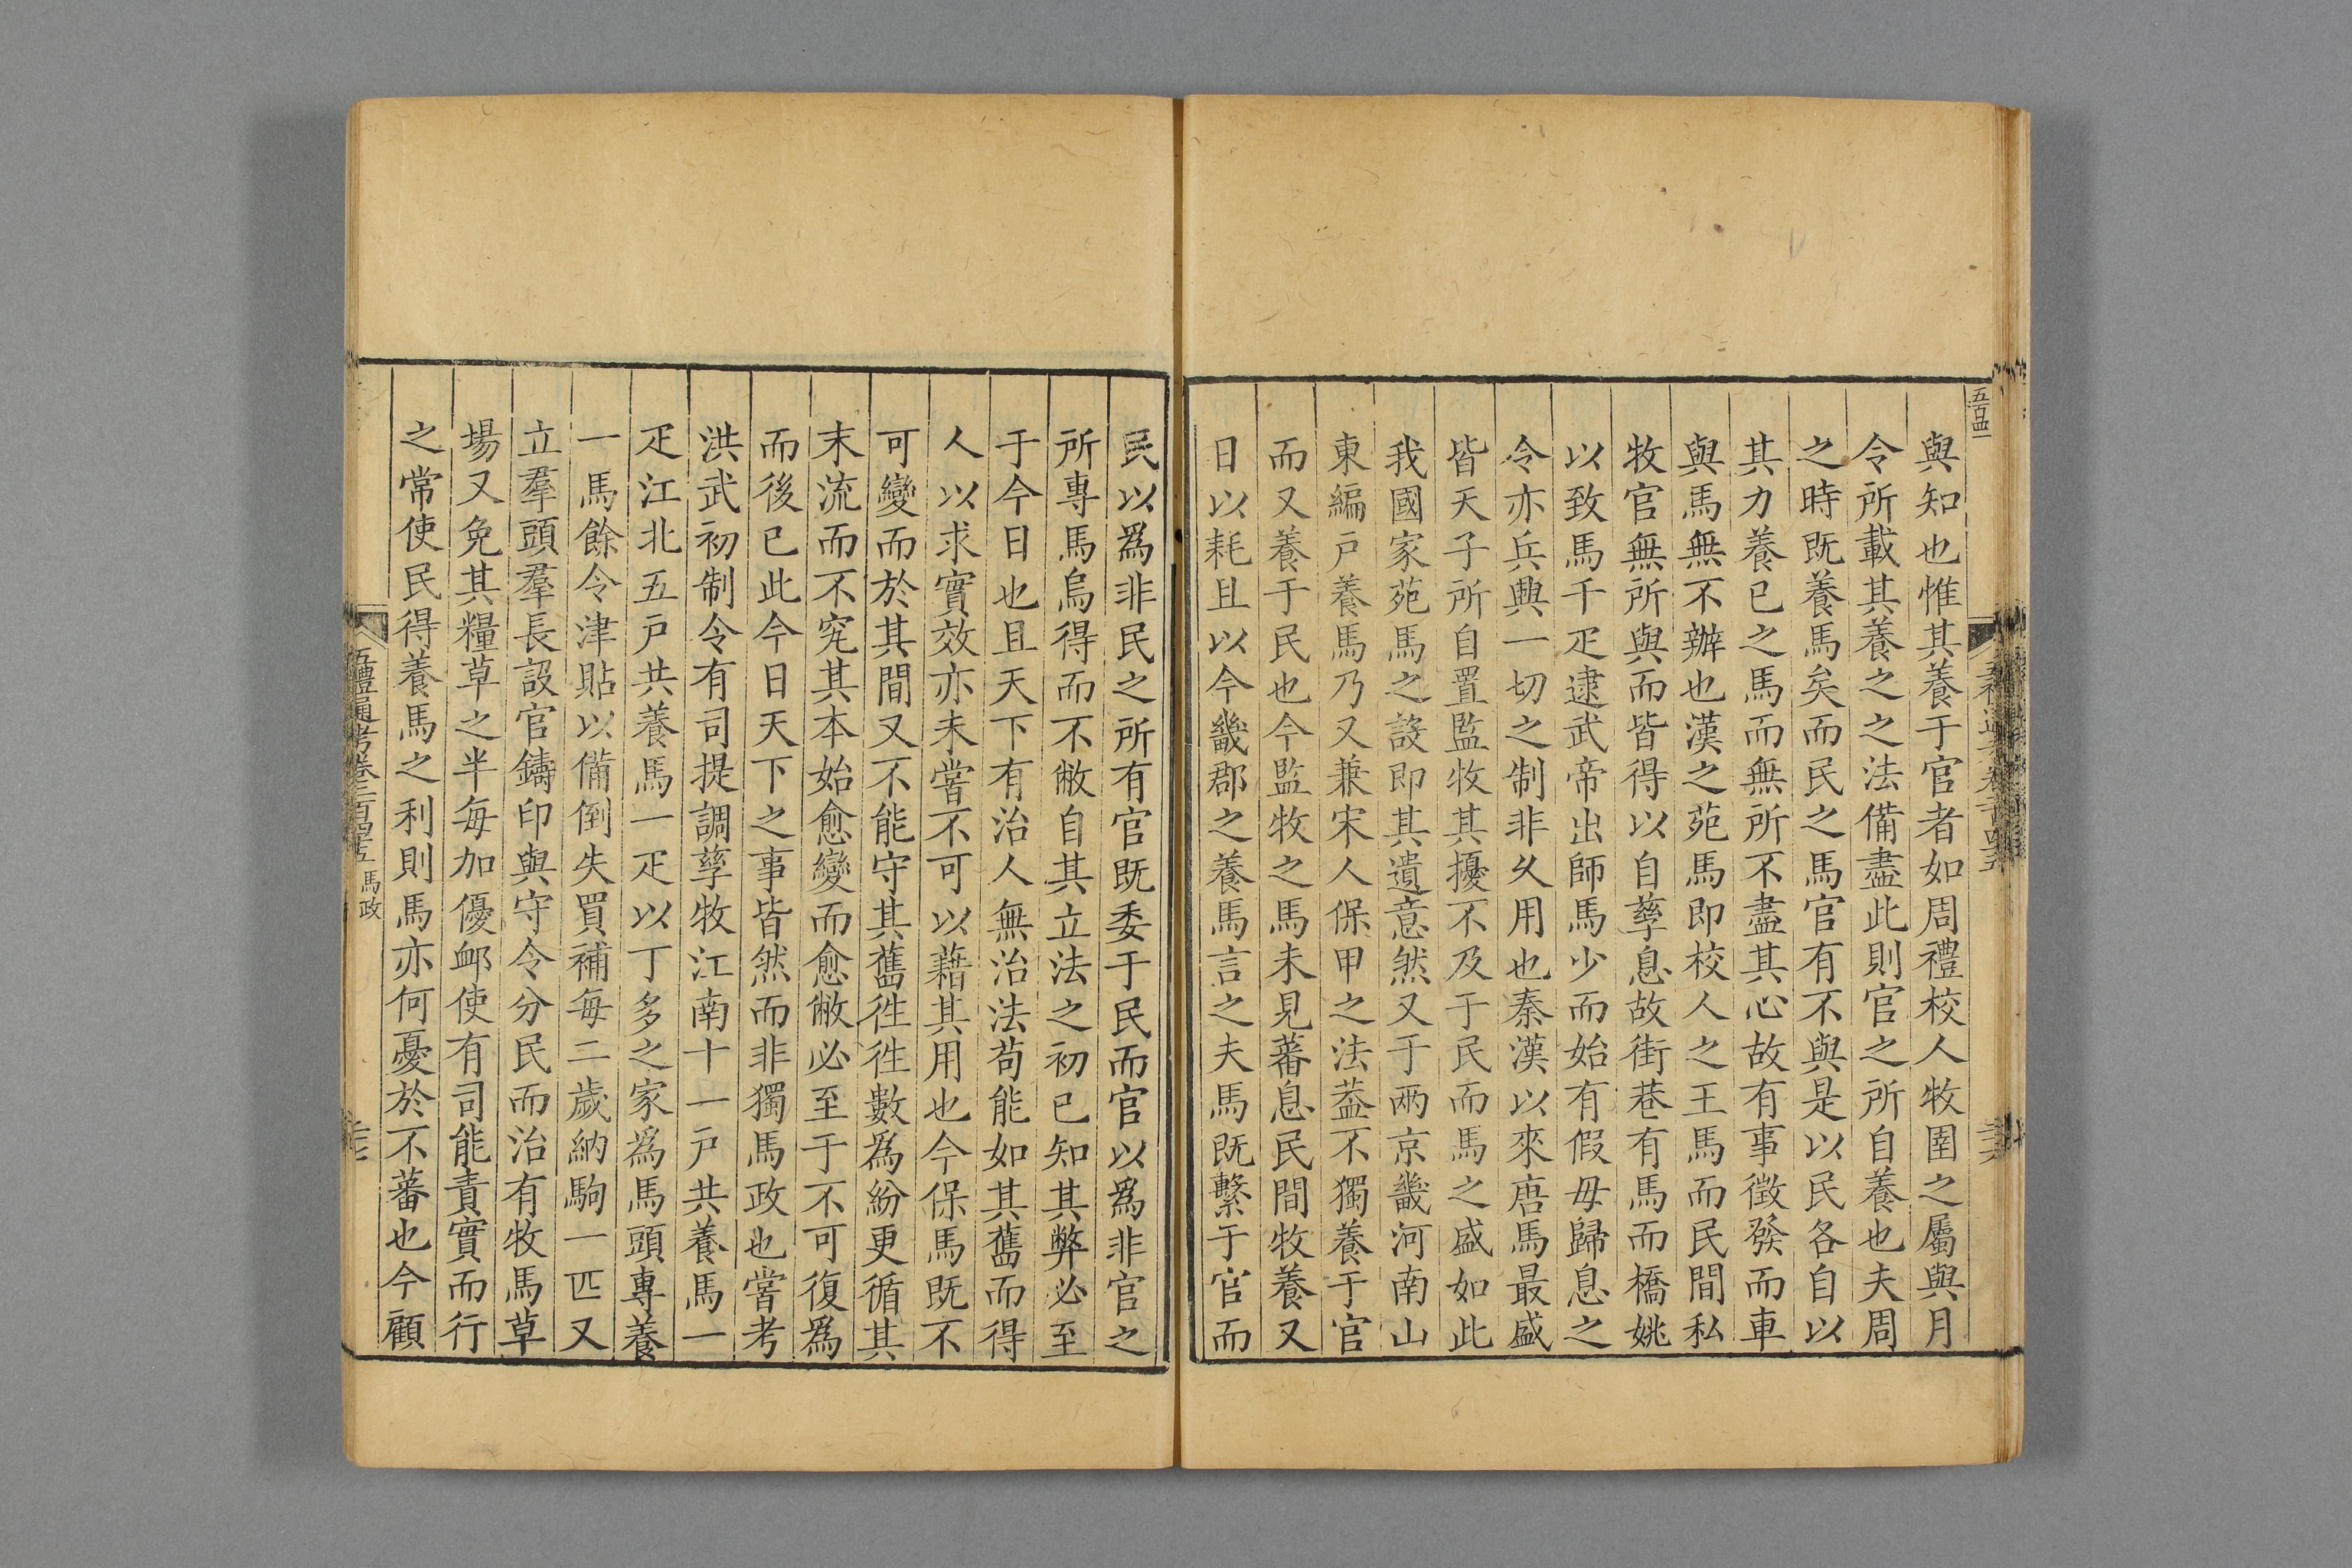 五百四一
與知也惟其養于官者如周禮校人牧圉之屬與月
令所載其養之之法備盡此則官之所自養也夫周
之時既養馬矣而民之馬官有不與是以民各自以
其力養已之馬而無所不盡其心故有事徵發而車
與馬無不辦也漢之苑馬即校人之王馬而民間私
牧官無所與而皆得以自孳息故街巷有馬而橋姚
以致馬千疋逮武帝出師馬少而始有假毋歸息之
令亦兵興一切之制非久用也秦漢以來唐馬最盛
皆天子所自置監牧其擾不及于民而馬之盛如此
我國家苑馬之設即其遺意然又于兩京畿河南山
東編戶養馬乃又兼宋人保甲之法蓋不獨養于官
而又養于民也今監牧之馬未見蕃息民間牧養又
日以耗且以今畿郡之養馬言之夫馬既繫于官而
民以爲非民之所有官既委于民而官以爲非官之
所專馬烏得而不敝自其立法之初已知其弊必至
于今日也且天下有治人無治法苟能如其舊而得
人以求實效亦未嘗不可以藉其用也今保馬既不
可變而於其間又不能守其舊徃徃數爲紛更循其
末流而不究其本始愈變而愈敝必至于不可復爲
而後已此今日天下之事皆然而非獨馬政也嘗考
洪武初制令有司提調孳牧江南十一戶共養馬一
疋江北五戶共養馬一疋以丁多之家爲馬頭專養
一馬餘令津貼以備倒失買補每二歲納駒一匹又
立羣頭羣長設官鑄印與守令分民而治有牧馬草
場又免其糧草之半每加優䘏使有司能責實而行
之常使民得養馬之利則馬亦何憂於不蕃也今顧
五禮通考卷二百四十五 馬政